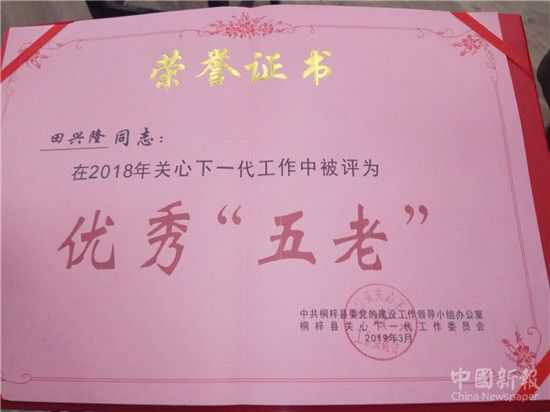 荣誉证书
田兴隆同志：
在2018年关心下一代工作中被评为
优秀“五老”
中共桐梓县委党的建设工作领导小组办公室
桐梓县关心下一代工作委员会
2019年3月
中國新報
China Newspaper